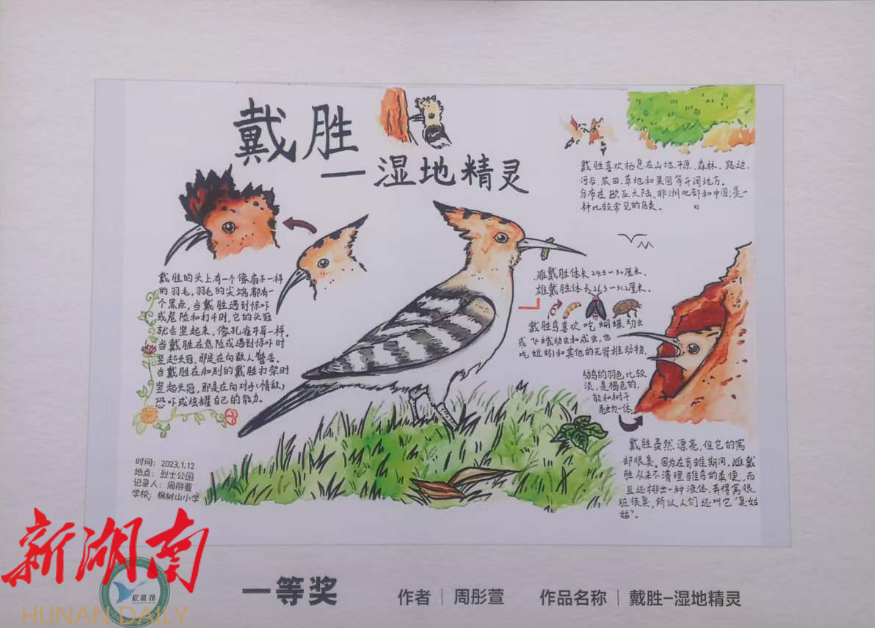 戴胜
—湿地精灵
戴胜喜欢栖息在山地、平原、森林、路边、
河谷、农田、草地和果园等开阔地方。
分布在欧亚大陆、非洲北部和中国,是一
种比较常见的鸟类。
戴胜的头上有一个像扇子一样
的羽毛,羽毛的尖端都有
一个黑点,当戴胜遇到惊吓
或危险和打斗时,它的头冠
就会竖起来,像孔雀开屏一样。
当戴胜在危险或遇到惊吓时
竖起头冠,那是在向敌人警告。
当戴胜在和别的戴胜打架时
竖起头冠,那是在向对手(情敌)
恐吓或炫耀自己的能力。
雌戴胜体长24.3—30厘米。
雄戴胜体长26.3—31.2厘米。
戴胜鸟喜欢吃蝴蝶、幼虫
或飞蛾幼虫和成虫,也
吃蚯蚓和其他的无脊椎动物。
幼鸟的羽色比较
淡,是褐色的,
能和树干
融为一体。
戴胜虽然漂亮,但它的窝
却很臭。因为在育雏期间,雌戴
胜从来不清理雏鸟的粪便,而
且还排出一种液体,弄得窝很
脏很臭,所以人们还叫它“臭姑
姑”。
时间:2023,1,12
地点:烈士公园
记录人:周彤萱
学校:枫树山小学
新湖南
HUNAN DAILY
一等奖
作者｜周彤萱
作品名称｜戴胜-湿地精灵